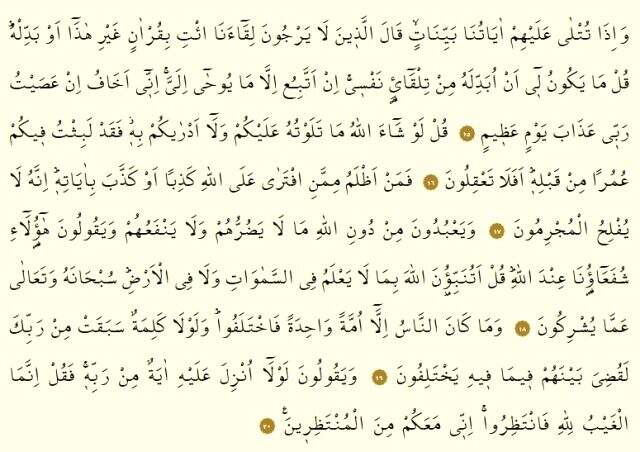 وَاِذَا تُتْلٰى عَلَيْهِمْ اٰيَاتُنَا بَيِّنَاتٍۙ قَالَ الَّذ۪ينَ لَا يَرْجُونَ لِقَٓاءَنَا ائْتِ بِقُرْاٰنٍ غَيْرِ هٰذَٓا اَوْ بَدِّلْهُۜ
قُلْ مَا يَكُونُ ل۪ٓي اَنْ اُبَدِّلَهُ مِنْ تِلْقَٓائِ۬ نَفْس۪يۚ اِنْ اَتَّبِعُ اِلَّا مَا يُوحٰٓى اِلَيَّۚ اِنّ۪ٓي اَخَافُ اِنْ عَصَيْتُ
رَبّ۪ي عَذَابَ يَوْمٍ عَظ۪يمٍ ﴿١٥﴾ قُلْ لَوْ شَٓاءَ اللّٰهُ مَا تَلَوْتُهُ عَلَيْكُمْ وَلَٓا اَدْرٰيكُمْ بِه۪ۘ فَقَدْ لَبِثْتُ ف۪يكُمْ
عُمُرًا مِنْ قَبْلِه۪ۜ اَفَلَا تَعْقِلُونَ ﴿١٦﴾ فَمَنْ اَظْلَمُ مِمَّنِ افْتَرٰى عَلَى اللّٰهِ كَذِبًا اَوْ كَذَّبَ بِاٰيَاتِه۪ۜ اِنَّهُ لَا
يُفْلِحُ الْمُجْرِمُونَ ﴿١٧﴾ وَيَعْبُدُونَ مِنْ دُونِ اللّٰهِ مَا لَا يَضُرُّهُمْ وَلَا يَنْفَعُهُمْ وَيَقُولُونَ هٰٓؤُ۬لَٓاءِ
شُفَعَٓاؤُ۬نَا عِنْدَ اللّٰهِۜ قُلْ اَتُنَبِّؤُ۫نَ اللّٰهَ بِمَا لَا يَعْلَمُ فِي السَّمٰوَاتِ وَلَا فِي الْاَرْضِۜ سُبْحَانَهُ وَتَعَالٰى
عَمَّا يُشْرِكُونَ ﴿١٨﴾ وَمَا كَانَ النَّاسُ اِلَّٓا اُمَّةً وَاحِدَةً فَاخْتَلَفُواۜ وَلَوْلَا كَلِمَةٌ سَبَقَتْ مِنْ رَبِّكَ
لَقُضِيَ بَيْنَهُمْ ف۪يمَا ف۪يهِ يَخْتَلِفُونَ ﴿١٩﴾ وَيَقُولُونَ لَوْلَٓا اُنْزِلَ عَلَيْهِ اٰيَةٌ مِنْ رَبِّه۪ۚ فَقُلْ اِنَّمَا
الْغَيْبُ لِلّٰهِ فَانْتَظِرُواۚ اِنّ۪ي مَعَكُمْ مِنَ الْمُنْتَظِر۪ينَ۟ ﴿٢٠﴾